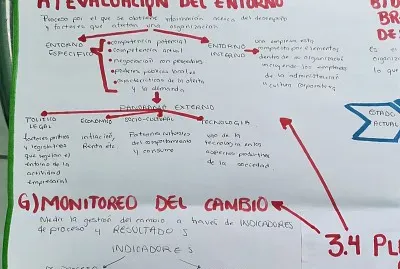 A) EVALUACIÓN DEL ENTORNO
Proceso por el que se obtiene información acerca del desempeño
y factores que afectan una organización
ENTORNO
ESPECIFICO
• competencia potencial
• competencia actual
• negociacion con proveedores
• poderes publicos locales
• caracteristicas de la oferta
y la demanda
ENTORNO
INTERNO
una empresa esta
compuesta por elementos
dentro de la organización
incluyendo los empleados
de la administracion
y cultura corporativa
PANORAMA EXTERNO
POLITICO
LEGAL
factores politicos
y legislativos
que regulan el
entorno de la
actividad
empresarial
ECONOMICO
inflación,
Renta etc
SOCIO-CULTURAL
Patrones culturales
del comportamiento
y consumo
TECNOLOGIA
uso de la
tecnologia en los
aspectos productivos
de la sociedad
G) MONITOREO DEL CAMBIO
Medir la gestión del cambio a través de INDICADORES
de proceso y RESULTADOS
INDICADORES
BR
DE
Es el
organiz
lo que
ESTADO
ACTUAL
3.4 PL